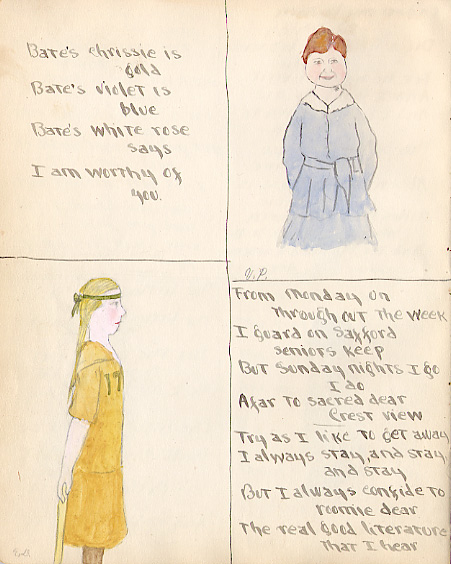 Bate's chrissie is
gold
Bate's violet is
blue
Bate's white rose
says
I am worthy of
you.
V.P.
17
From Monday on
Through out the week
I guard on Safford
seniors keep
But Sunday nights I go
I do
Afar to sacred dear
Crest view
Try as I like to get away
I always stay, and stay,
and stay
But I always confide to
roomie dear
The real good literature
That I hear